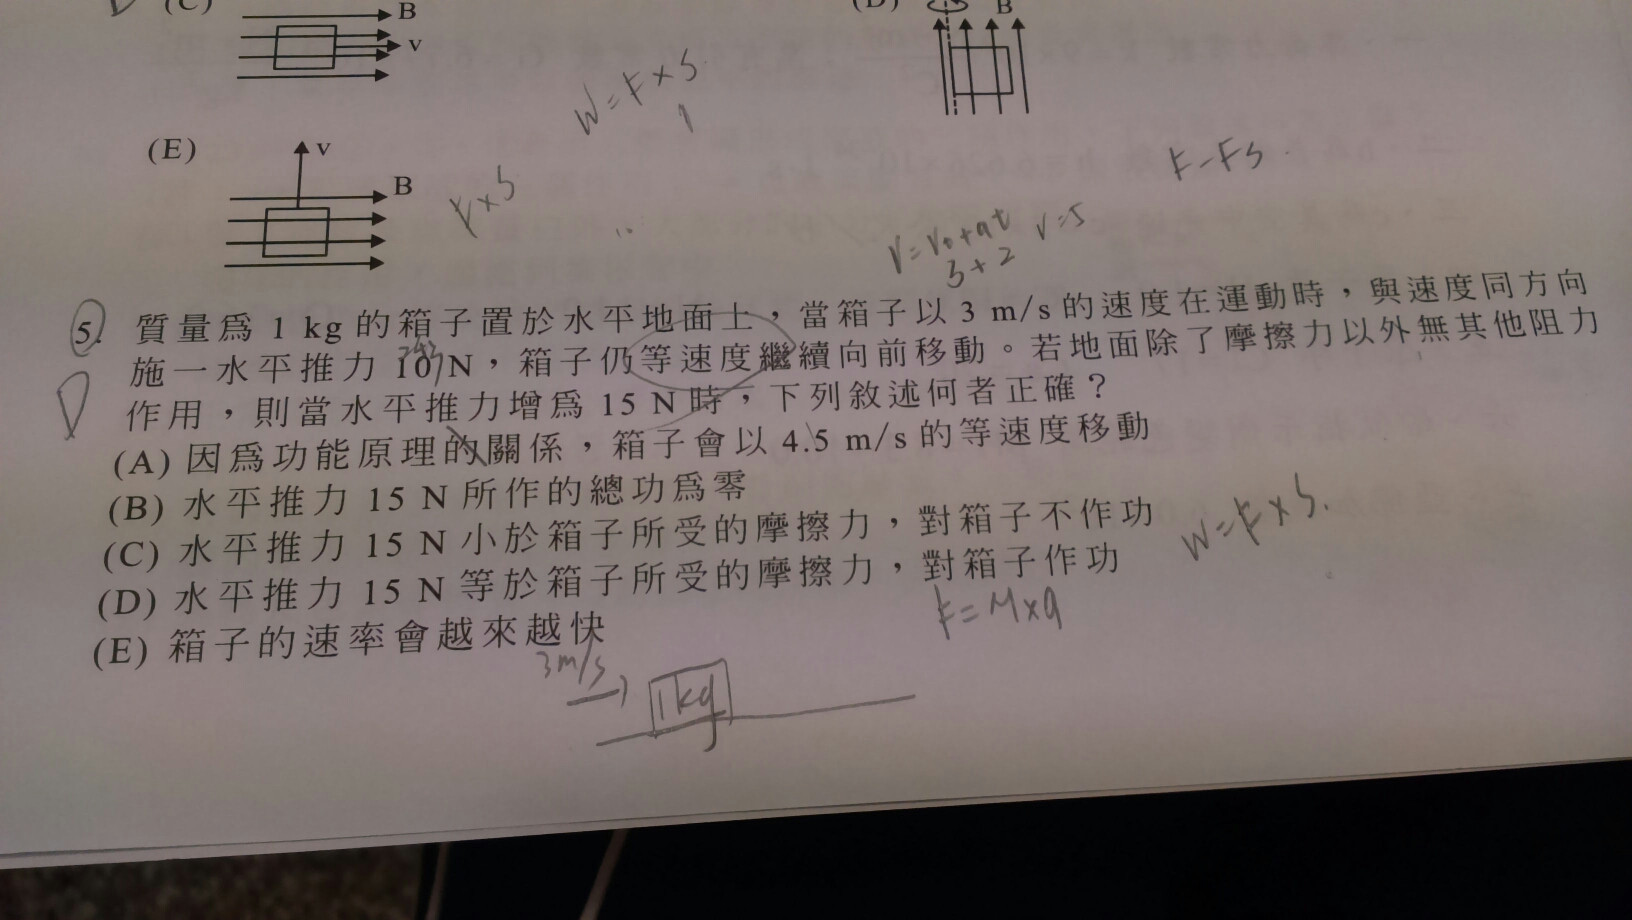 (C)
B
v
(D)
B
W=F×S
(E)
v
B
F×S
F-Fs
V=V₀+at V=5
3+2
5. 質量為 1 kg 的箱子置於水平地面上，當箱子以 3 m/s 的速度在運動時，與速度同方向
施一水平推力 10 N，箱子仍等速度繼續向前移動。若地面除了摩擦力以外無其他阻力
作用，則當水平推力增為 15 N 時，下列敘述何者正確？
(A) 因為功能原理的關係，箱子會以 4.5 m/s 的等速度移動
(B) 水平推力 15 N 所作的總功為零
(C) 水平推力 15 N 小於箱子所受的摩擦力，對箱子不作功
(D) 水平推力 15 N 等於箱子所受的摩擦力，對箱子作功
(E) 箱子的速率會越來越快
W=F×S
F=M×a
3m/s
1kg